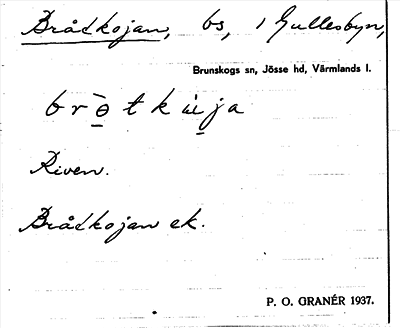 Brådkojan, bs, i Gullesbyn,
Brunskogs sn, Jösse hd, Värmlands l.
Riven.
Brådkojan ek.
P. O. GRANÉR 1937.